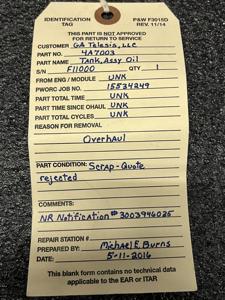 IDENTIFICATION TAG
P&W F3015D
REV. 11/14
THIS PART IS NOT APPROVED
FOR RETURN TO SERVICE
CUSTOMER GA Telesis, LLC
PART NO. 4A7003
PART NAME Tank, Assy Oil
S/N F11000 QTY 1
FROM ENG / MODULE UNK
PWORC JOB NO. 15534249
PART TOTAL TIME UNK
PART TIME SINCE OHAUL UNK
PART TOTAL CYCLES UNK
REASON FOR REMOVAL
Overhaul
PART CONDITION: Scrap-Quote
rejected
COMMENTS:
NR Notification# 3003946025
REPAIR STATION #
PREPARED BY: Michael E. Burns
DATE: 5-11-2016
This blank form contains no technical data
applicable to the EAR or ITAR